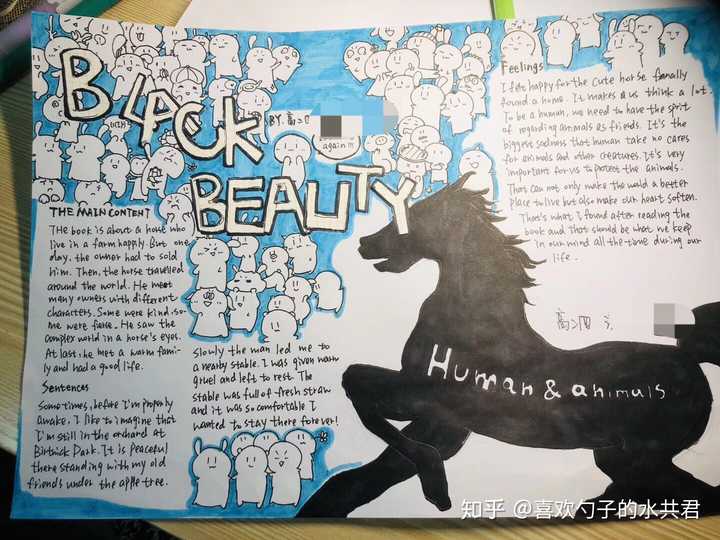 BLACK
BEAUTY
BY 高二
again!!!
THE MAIN CONTENT
THE book is about a horse who
live in a farm happily. But one
day, the owner had to sold
him. Then, the horse travelled
around the world. He meet
many owners with different
characters. Some were kind, so-
me were fierce. He saw the
complex world in a horse's eyes.
At last, he met a warm fami-
ly and had a good life.
Sentences
Sometimes, before I'm properly
awake, I like to imagine that
I'm still in the orchard at
Birtwick Park. It is peaceful
there standing with my old
friends under the apple tree.
Slowly the man led me to
a nearby stable. I was given warm
gruel and left to rest. The
stable was full of fresh straw
and it was so comfortable I
wanted to stay there forever!
Feelings
I felt happy for the cute horse finally
found a home. It makes us think a lot.
To be a human, we need to have the sprit
of regarding animals as friends. It's the
biggest sadness that human take no cares
for animals and other creatures. It's very
important for us to protect the animals.
That can not only make the world a better
place to live but also make our heart soften.
That's what I found after reading the
book and that should be what we keep
in our mind all the time during our
life.
高二四
Human & animals
知乎 @喜欢勺子的水共君